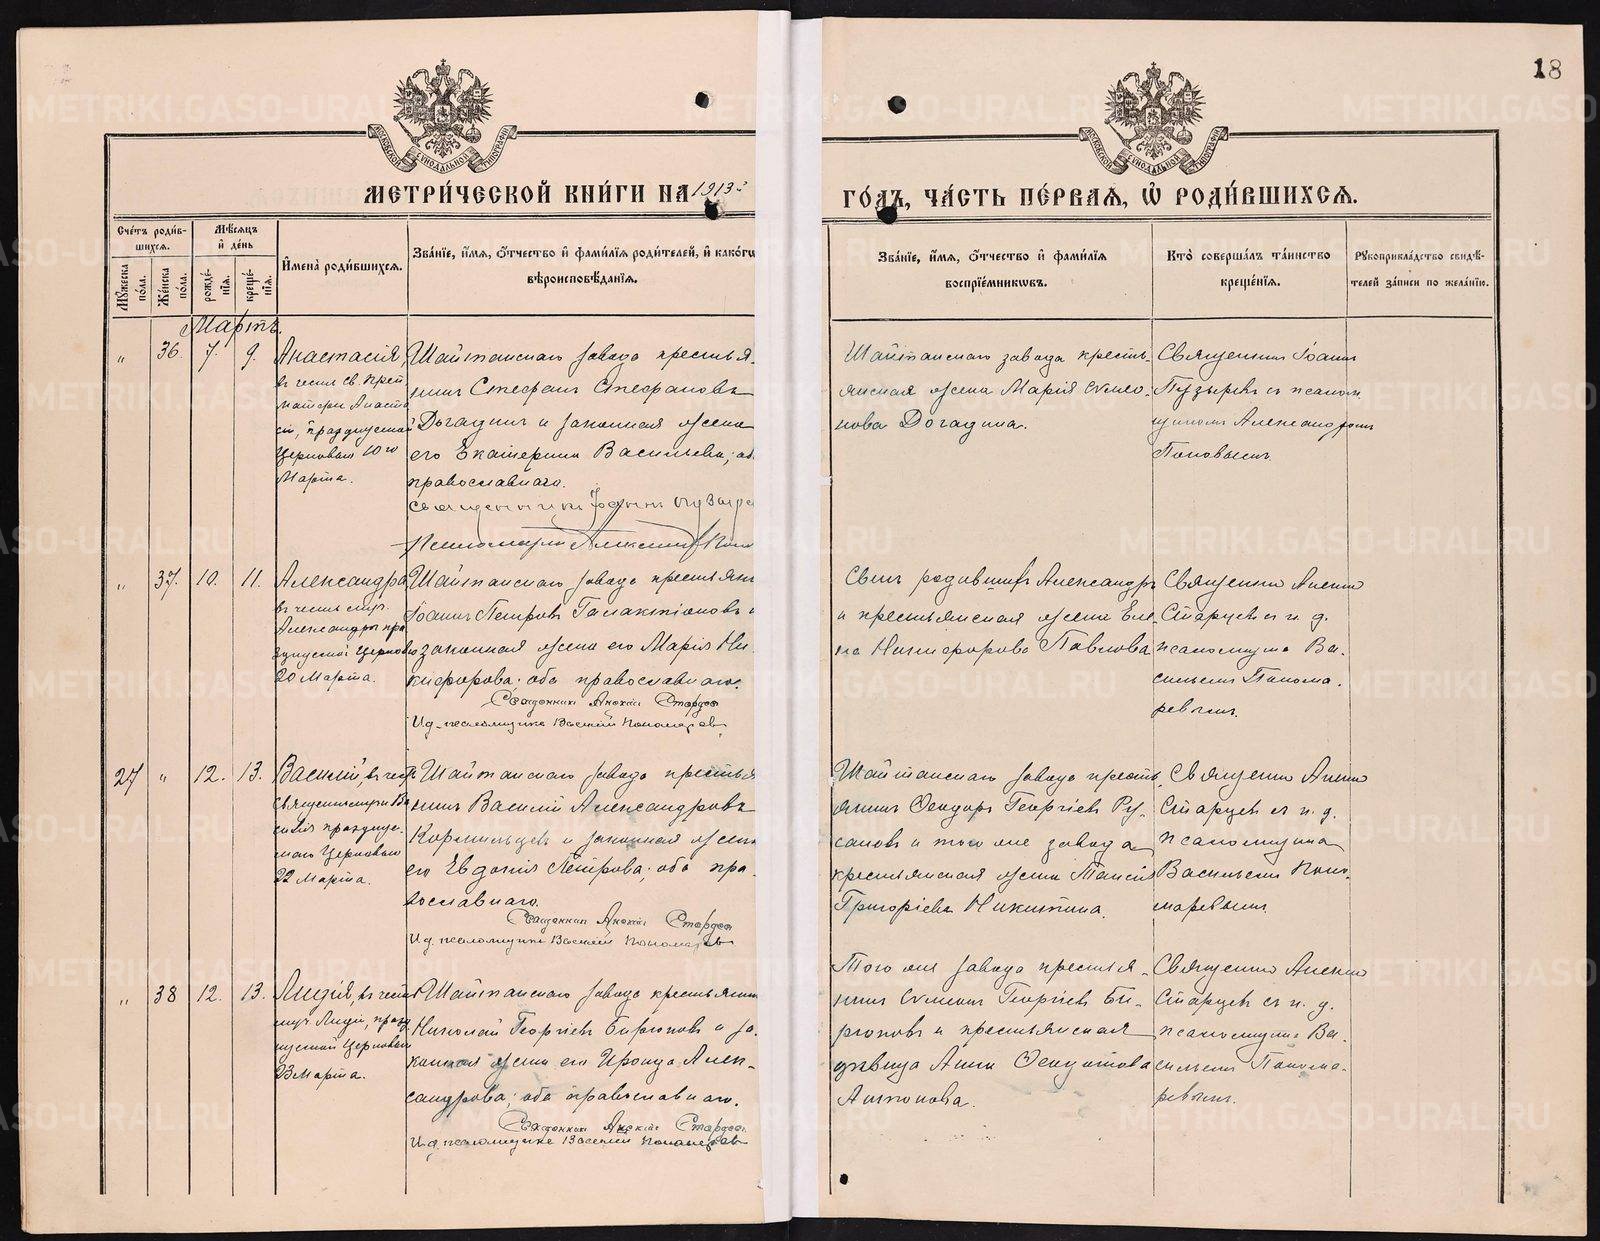 18
МОСКОВСКОЙ СѴНОДАЛЬНОЙ ТИПОГРАФІИ
МОСКОВСКОЙ СѴНОДАЛЬНОЙ ТИПОГРАФІИ
МЕТРИ́ЧЕСКОЙ КНИ́ГИ НА 1913 ГО́ДЪ, ЧА́СТЬ ПЕ́РВАѦ, Ѽ РОДИ́ВШИХСѦ.
Сче́тъ роди́в-
шихсѧ.
Мꙋ́жеска по́ла.
Же́нска по́ла.
Мѣ́сѧцъ
и҆ де́нь
рожде́-
нїѧ.
креще́-
нїѧ.
И҆мена̀ роди́вшихсѧ.
Зва́нїе, и҆́мѧ, ѻ҆́тчество и҆ фами́лїѧ роди́телей, и҆ како́гѡ
вѣроисповѣ́данїѧ.
Зва́нїе, и҆́мѧ, ѻ҆́тчество и҆ фами́лїѧ
воспрїе́мникѡвъ.
Кто̀ соверша́лъ та́инство
креще́нїѧ.
Рꙋкоприкла́дство свидѣ́-
телей за́писи по жела́нїю.
Мартъ.
„ 36. 7. 9.
Анастасія,
въ честь св. преп.
матери Анаста
сіи, празднуемой
Церковью 10го
Марта.
Шайтанскаго завода крестья-
нинъ Стефанъ Стефановъ
Догадинъ и законная жена
его Екатерина Васильева; оба
православнаго.
Священникъ Іоаннъ Пузыре
Псаломщикъ Александръ Попо
Шайтанскаго завода кресть-
янская жена Марія Сѵмео-
нова Догадина.
Священникъ Іоаннъ
Пузыревъ съ псалом-
щикомъ Александромъ
Поповымъ.
„ 37. 10. 11.
Александра
въ честь муч.
Александры пра
зднуемой Церковью
20 Марта.
Шайтанскаго завода крестьянинъ
Іоаннъ Петровъ Галактіоновъ и
законная жена его Марія Ни-
кифорова; оба православнаго.
Священникъ Старцев
И.д. псаломщика Василий Пономарев
Сынъ родившихъ Александръ
и крестьянская жена Еле-
на Никифорова Павлова
Священникъ
Старцевъ съ и. д.
псаломщика Ва-
сильемъ Понома-
ревымъ.
27 „ 12. 13.
Василій, въ честь
Священномуч. Ва
силія празднуе-
маго Церковью
22 Марта.
Шайтанскаго завода крестья
нинъ Василій Александровъ
Кормильцевъ и законная жена
его Евдокія Петрова; оба пра-
вославнаго.
Священник Старцев
И.д. псаломщика Василий Пономарев
Шайтанскаго завода кресть-
янинъ Ѳеодоръ Георгіевъ Ру-
сановъ и того же завода
крестьянская жена Таисія
Григорьева Никитина.
Священникъ
Старцевъ съ и. д.
псаломщика
Васильемъ Поно-
маревымъ.
„ 38 12. 13.
Лидія, въ честь
муч. Лидіи, празд
нуемой Церковью
23 Марта.
Шайтанскаго завода крестьянинъ
Николай Георгіевъ Бирюковъ и за-
конная жена его Ираида Алек-
сандрова; оба православнаго.
Священник Старцев
И.д. псаломщика Василий Пономарев
Того же завода крестья-
нинъ Сѵмеонъ Георгіевъ Би-
рюковъ и крестьянская
дѣвица Анна Ѳеодотова
Антонова.
Священникъ
Старцевъ съ и. д.
псаломщика Ва-
сильемъ Понома-
ревымъ.
METRIKI.GASO-URAL.RU